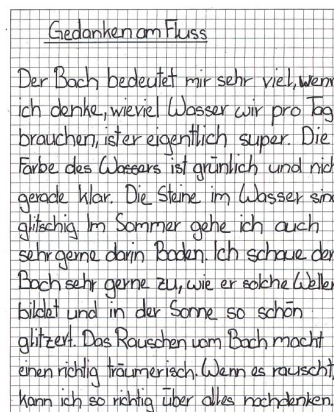 Gedanken am Fluss
Der Bach bedeutet mir sehr viel, wenn
ich denke, wieviel Wasser wir pro Tag
brauchen, ist er eigentlich super. Die
Farbe des Wassers ist grünlich und nich
gerade klar. Die Steine im Wasser sind
glitschig Im Sommer gehe ich auch
sehr gerne darin Baden. Ich schaue dem
Bach sehr gerne zu, wie er solche Wellen
bildet und in der Sonne so schön
glitzert. Das Rauschen vom Bach macht
einen richtig träumerisch. Wenn es rauscht,
kann ich so richtig über alles nachdenken.